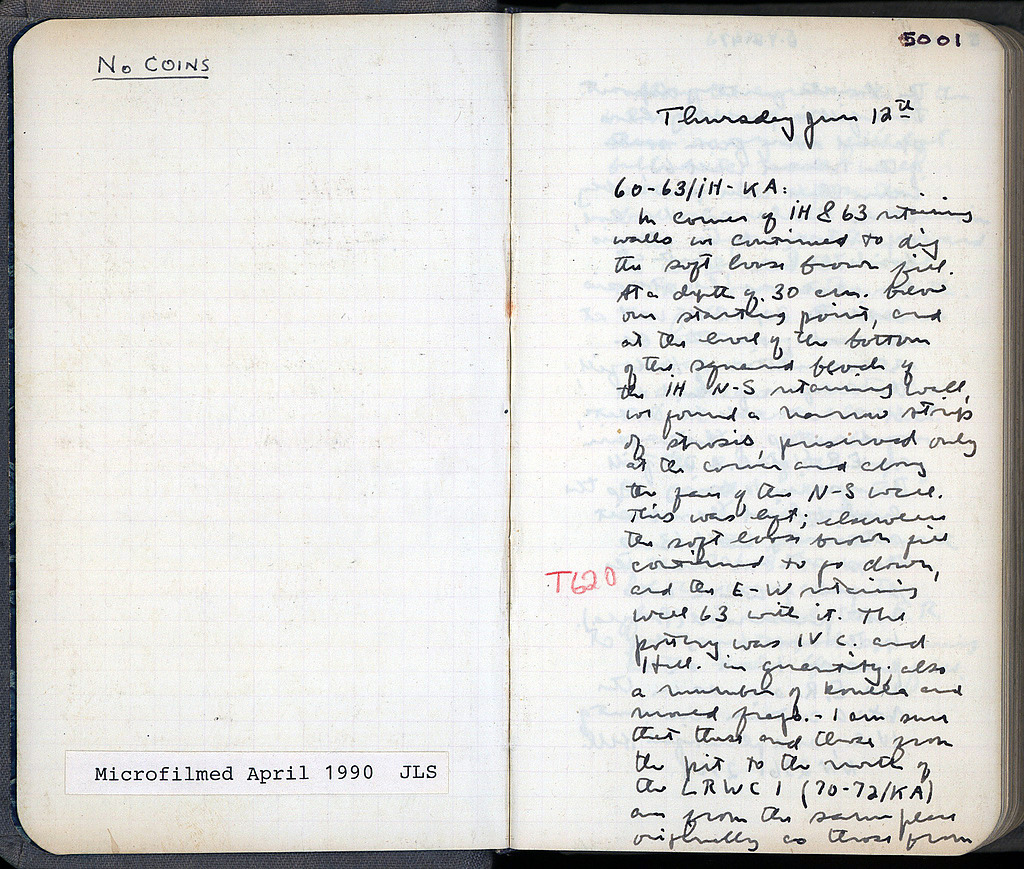 No COINS
Microfilmed April 1990 JLS
5001
Thursday Jun 12th
60-63/IH-KA:
In corner of IH & 63 retaining
walls we continued to dig
the soft loose brown fill.
At a depth of .30 cm. below
our starting point, and
at the level of the bottom
of the squared blocks of
the IH N-S retaining wall,
we found a narrow strip
of strosis, preserved only
at the corner and along
the face of the N-S wall.
This was left; elsewhere
the soft loose brown fill
continued to go down,
T620
and the E-W retaining
wall 63 with it. The
pottery was IV c. and
Hell. in quantity; also
a number of koulla and
mould frags. - I am sure
that these and those from
the pit to the north of
the LRWC 1 (70-72/KA)
are from the same place
originally as those from